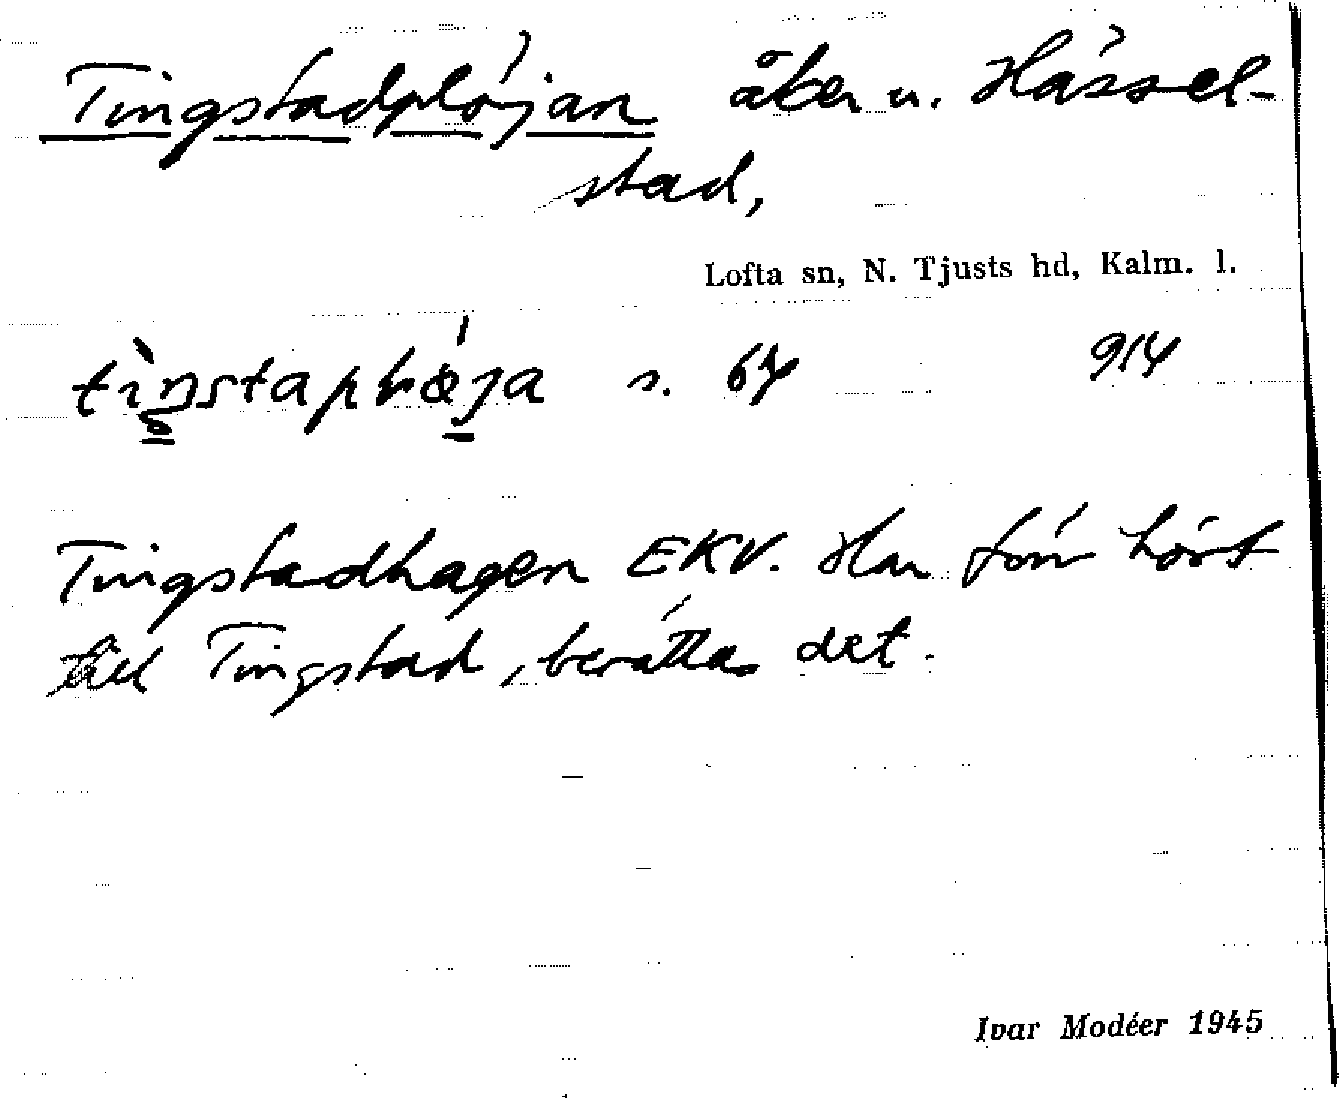 Tingstadplöjan åker u. Hässel-
stad,
Lofta sn, N. Tjusts hd, Kalm. l.
s. 64 914
Tingstadhagen EKV. Har förr hört
till Tingstad, berättas det.
Ivar Modéer 1945